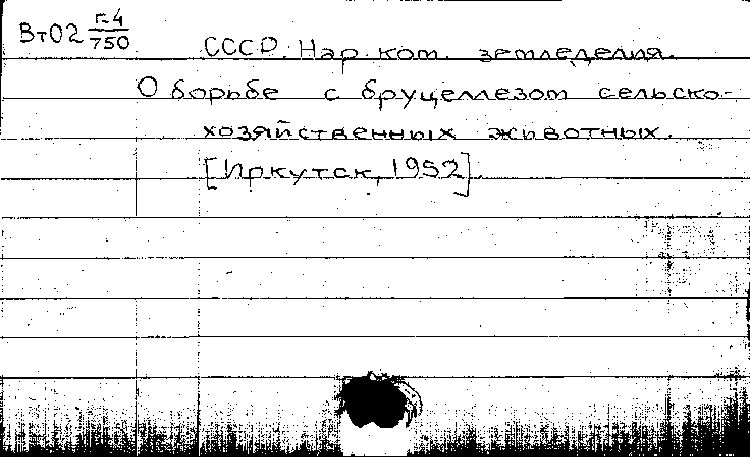 Вт02 г-4/750
СССР. Нар. ком. земледелия.
О борьбе с бруцеллезом сельско-
хозяйственных животных.
[Иркутск, 1952].